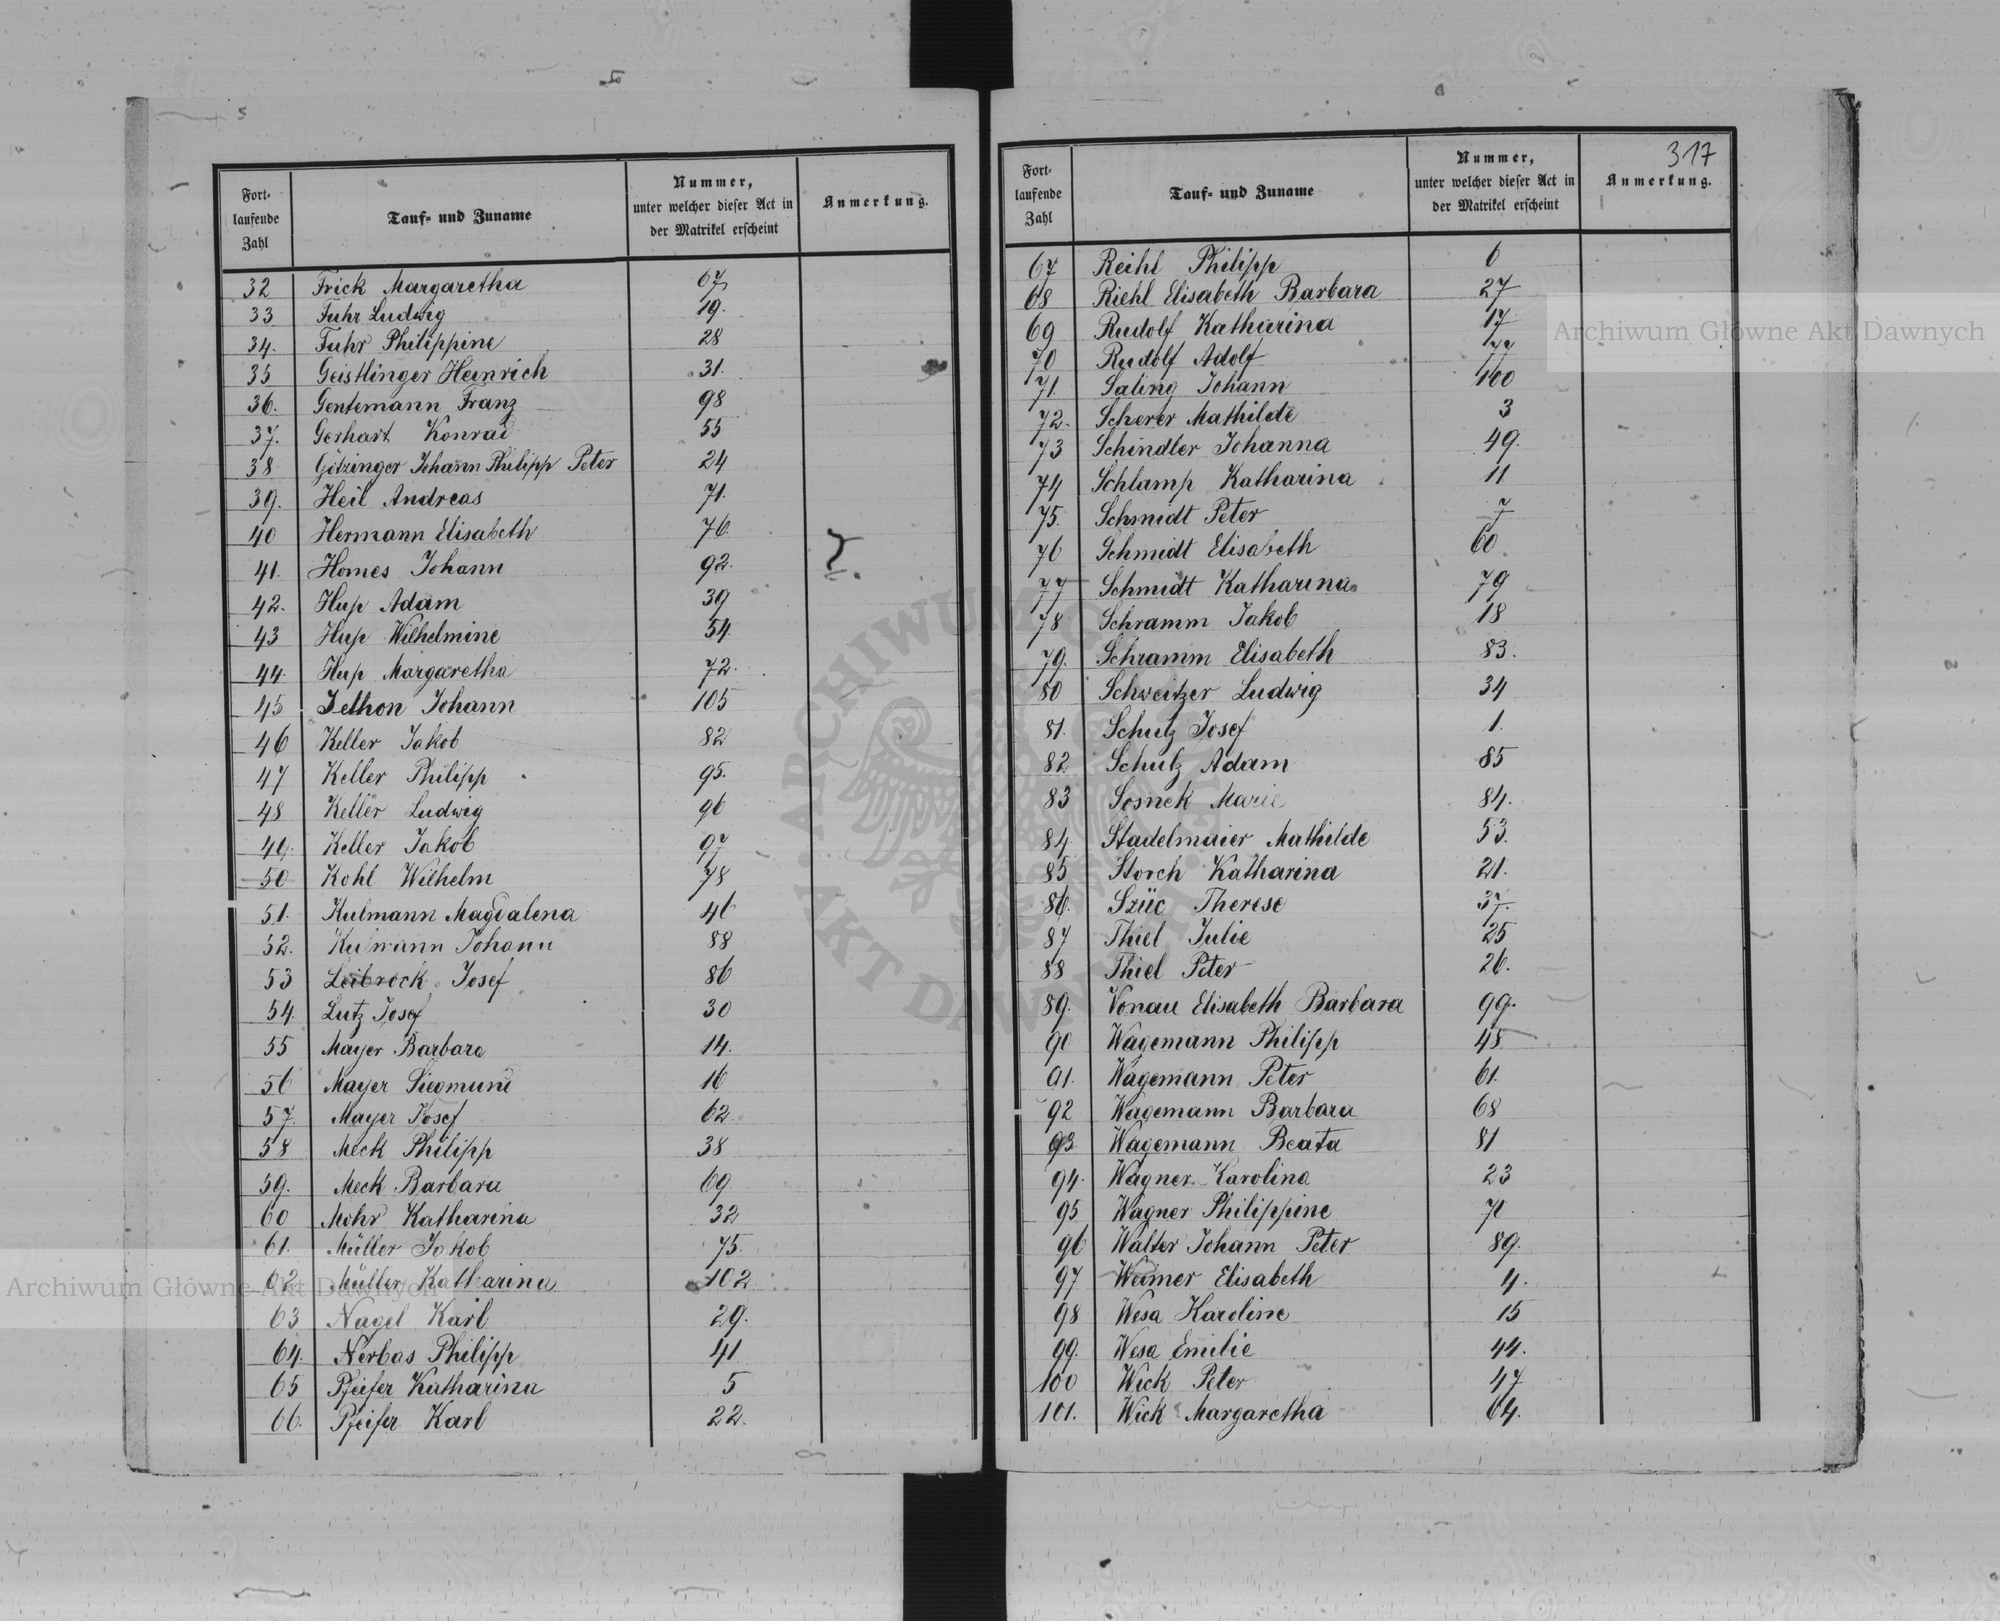 Fort-
laufende
Zahl
Tauf- und Zuname
Nummer,
unter welcher dieser Act in
der Matrikel erscheint
Anmerkung.
32 Frick Margaretha 67
33 Fuhr Ludwig 19.
34. Fuhr Philippine 28
35 Geistlinger Heinrich 31.
36. Gentemann Franz 98
37. Gerhart Konrad 55
38 Götzinger Johann Philipp Peter 24
39. Heil Andreas 71.
40 Hermann Elisabeth 76.
41. Homes Johann 92.
42. Hup Adam 39
43 Hup Wilhelmine 54.
44. Hup Margaretha 72.
45 Jethon Johann 105
46 Keller Jakob 82
47 Keller Philipp 95.
48 Keller Ludwig 96
49. Keller Jakob 97
50 Kohl Wilhelm 78
51. Kulmann Magdalena 46
52. Kulmann Johann 88
53 Leibrock Josef 86
54. Lutz Josef 30
55 Mayer Barbara 14.
56 Mayer Siegmund 16
57. Mayer Josef 62
58 Meck Philipp 38
59. Meck Barbara 69
60 Mohr Katharina 32
61. Müller Jakob 75.
62 Müller Katharina 102
63 Nagel Karl 29.
64. Nerbas Philipp 41
65 Pfeifer Katharina 5
66. Pfeifer Karl 22.
317
Fort-
laufende
Zahl
Tauf- und Zuname
Nummer,
unter welcher dieser Act in
der Matrikel erscheint
Anmerkung.
67 Reihl Philipp 6
68 Riehl Elisabeth Barbara 27
69 Rudolf Katharina 17
70 Rudolf Adolf
71. Saling Johann 100
72. Scherer Mathilde 3
73 Schindler Johanna 49.
74 Schlamp Katharina 11
75. Schmidt Peter 7
76 Schmidt Elisabeth 60
77 Schmidt Katharina 79
78 Schramm Jakob 18
79. Schramm Elisabeth 83.
80 Schweitzer Ludwig 34
81. Schulz Josef 1.
82 Schulz Adam 85
83 Sosnek Marie 84.
84 Stadelmaier Mathilde 53.
85 Storch Katharina 21.
86. Szüc Therese 37.
87 Thiel Julie 25
88 Thiel Peter 26.
89. Vonau Elisabeth Barbara 99.
90 Wagemann Philipp 48
91. Wagemann Peter 61.
92 Wagemann Barbara 68
93. Wagemann Beata 81
94. Wagner Karolina 23
95 Wagner Philippine 70
96 Walter Johann Peter 89.
97 Weimer Elisabeth 4.
98 Wesa Karoline 15
99. Wesa Emilie 44.
100 Wick Peter 47
101. Wick Margaretha 64.
Archiwum Główne Akt Dawnych
Archiwum Główne Akt Dawnych
ARCHIWUM GŁÓWNE
AKT DAWNYCH